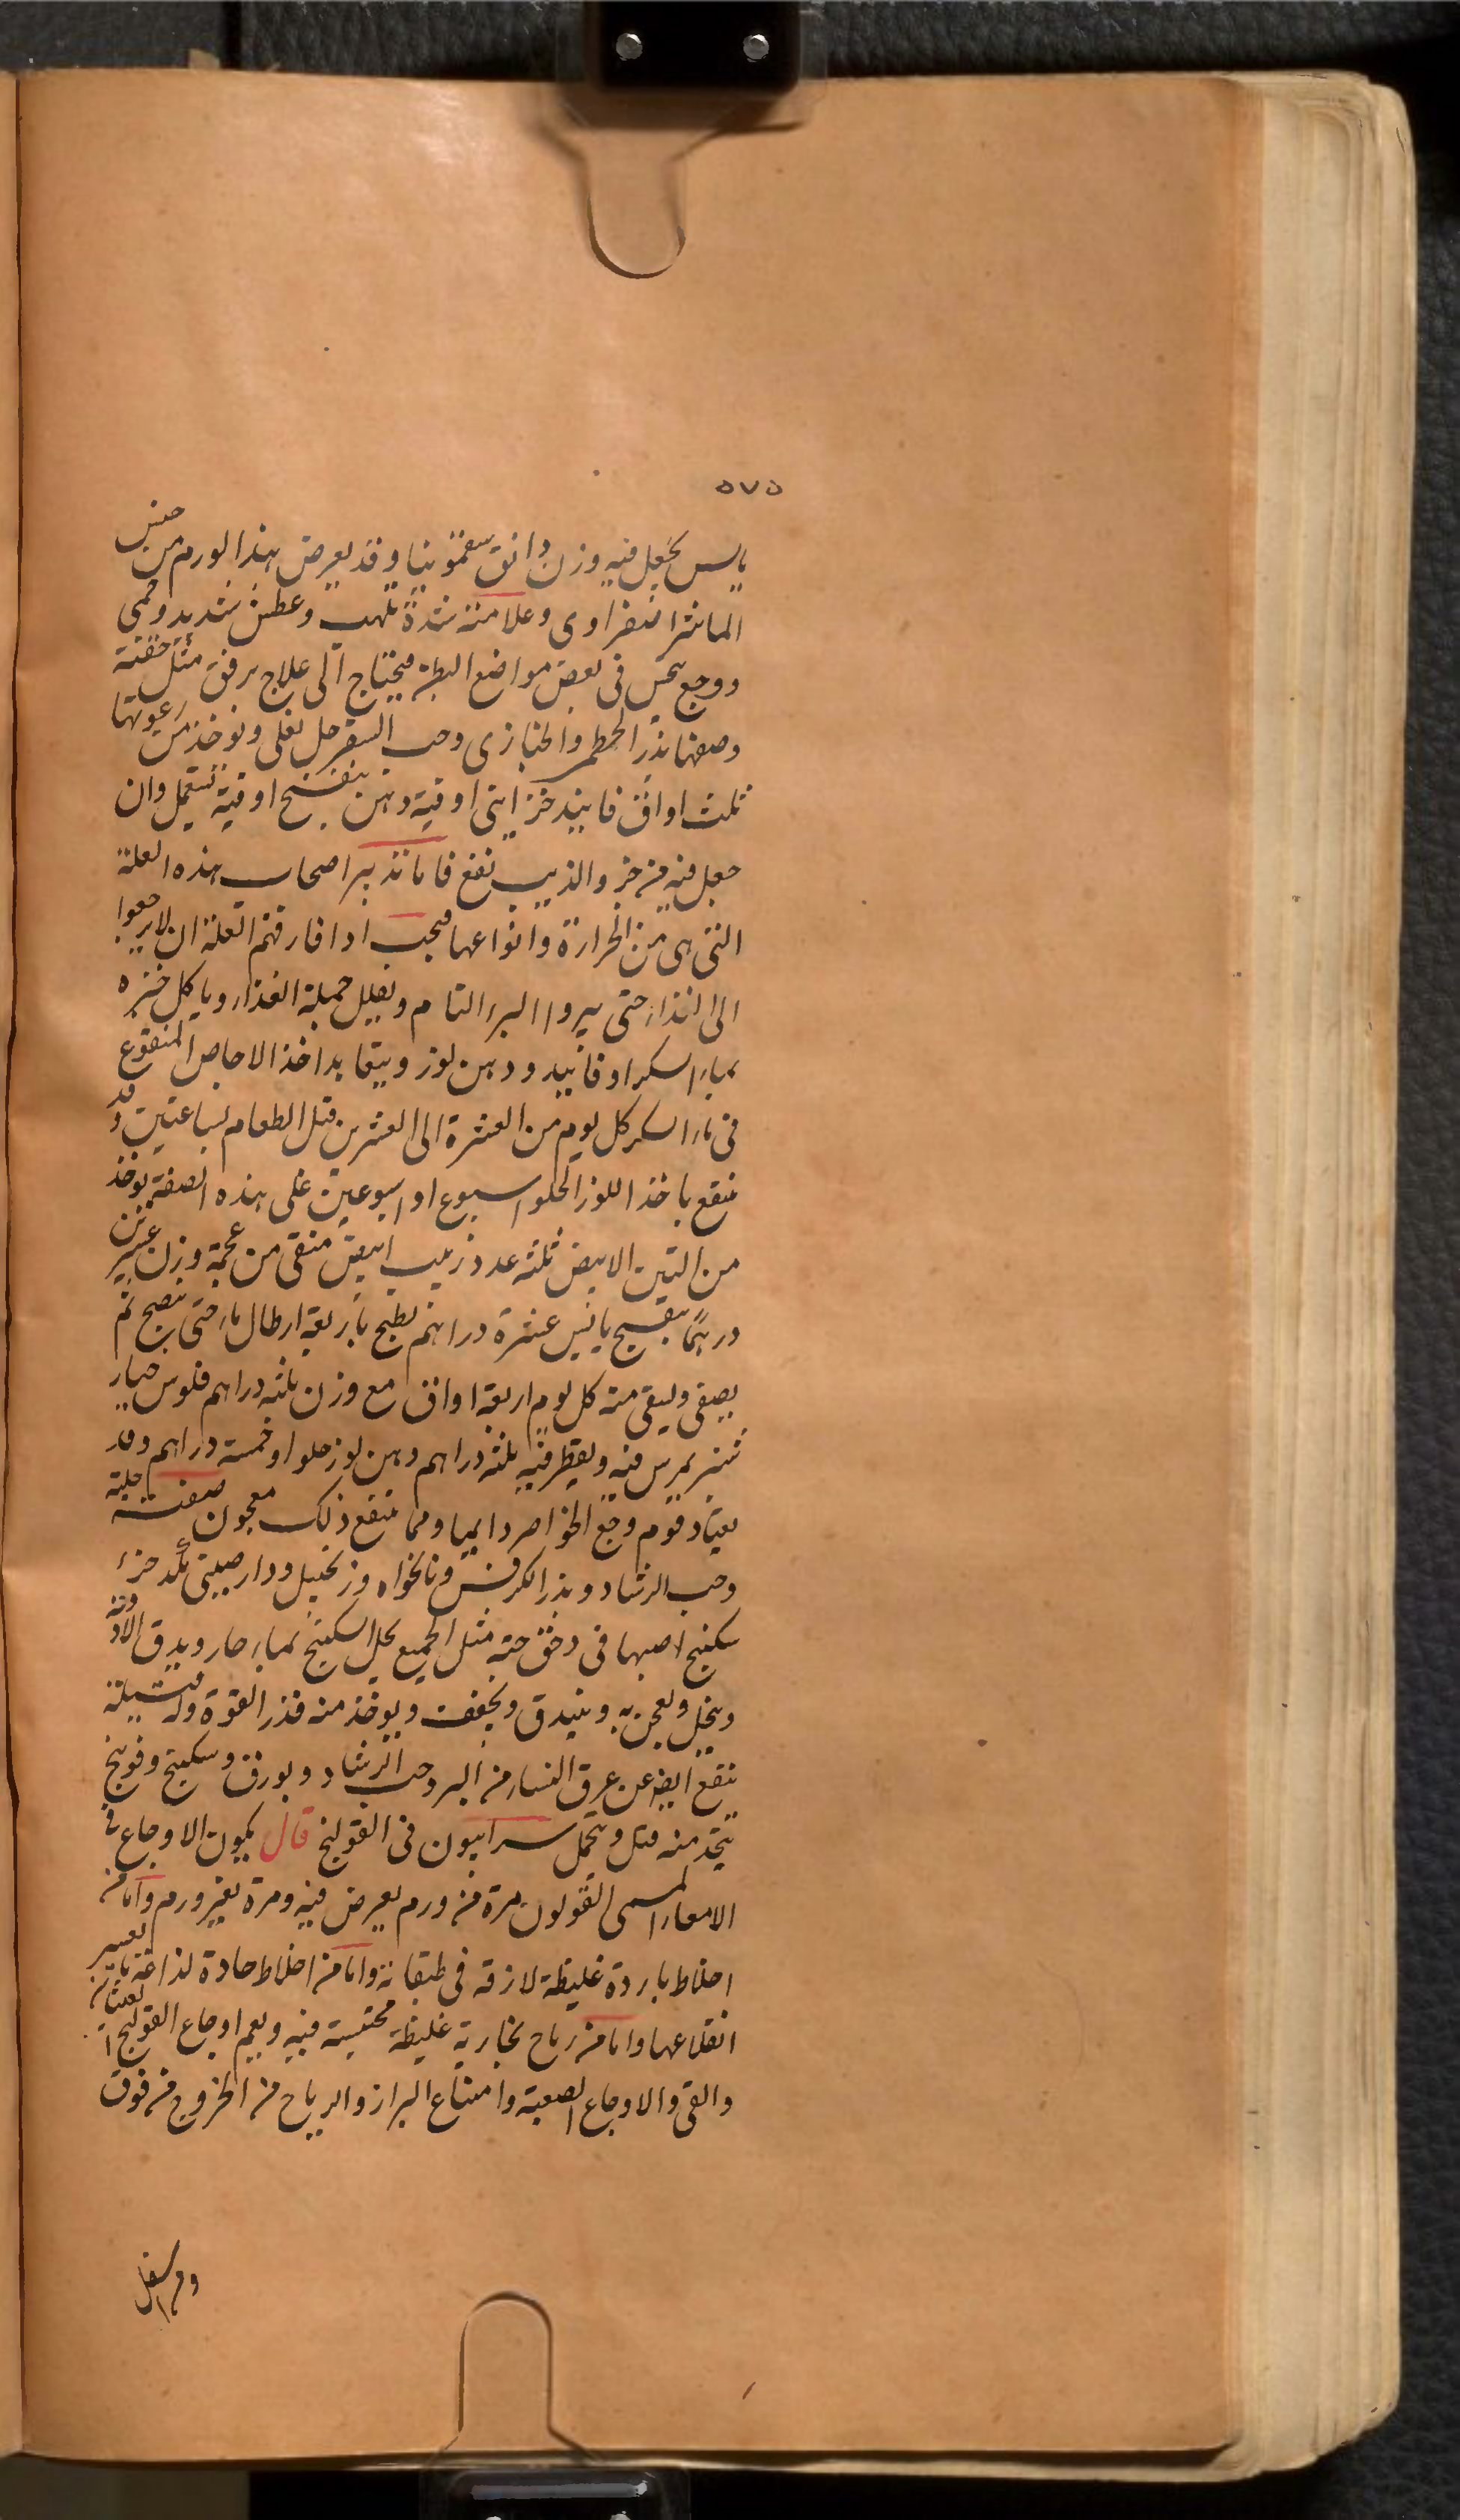 ٥٧٥
يابس يجعل فيه وزن دانق سقمونيا وقد يعرض هذا الورم من جنس
الماشرا صفراوى وعلامته شدة تلهب وعطش شديد وحمى
ووجع يحس فى بعض مواضع البطن فيحتاج الى علاج برفق مثل حقنة
وصفتها بذر الخطمى والخبازى وحب السفرجل يغلى ويوخذ من رغوتها
ثلث اواق فانيد خزاينى اوقية دهن بنفسج اوقية تستعمل وان
جعل فيه من خر والذيب نفع فاما تدبير اصحاب هذه العلة
التى هى من الحرارة وانواعها فيجب اذا فارقتهم العلة ان لا يرجعوا
الى الغذاء حتى يبروا البرء التام ويقلل جملة الغذاء وياكل خبزه
بماء السكر او فانيد ودهن لوز ويتعاهد اخذ الاجاص المنقوع
فى ماء السكر كل يوم من العشرة الى العشرين قبل الطعام بساعتين وقد
ينفع باخذ اللوز الحلو اسبوع او اسبوعين على هذه الصفة يوخذ
من التين الابيض ثلثه عدد زبيب ابيض منقى من عجمه وزن عشرين
درهمًا بنفسج يابس عشرة دراهم يطبخ باربعة ارطال ماء حتى ينضج ثم
يصفى ويسقى منه كل يوم اربعة اواق مع وزن ثلثه دراهم فلوس خيار
شنبر يمرس فيه ويقطر فيه ثلثه دراهم دهن لوز حلو او خمسة دراهم وقد
يعتاد قوم وجع الخواصر دايما ومما ينفع ذلك معجون صفته حلبه
وحب الرشاد وبذر الكرفس ونانخواه وزنجبيل ودارصينى جزء
سكبينج اصبهانى دخن حته مثل الجميع يحل السكبينج بماء حار ويدق الادوية
وينخل ويعجن به ويبندق ويجفف ويوخذ منه قدر القوة وله فتيلة
ينفع ايضا عن عرق النساء من البرد حب الرشاد وبورق وسكبينج وفوبنج
يتخذ منه فتل ويتحمل سرابيون فى القولنج قال يكون الاوجاع فى
الامعاء المسمى القولون مرة من ورم يعرض فيه ومرة بغير ورم واما من
اخلاط باردة غليظة لازقة فى طبقاته واما من اخلاط حادة لذاعة يعسر
انقلاعها واما من رياح بخارية غليظة محتبسة فيه ويعم اوجاع القولنج الغثيان
والقى والاوجاع الصعبة وامتناع البراز والرياح من الخروج من فوق
ومن اسفل